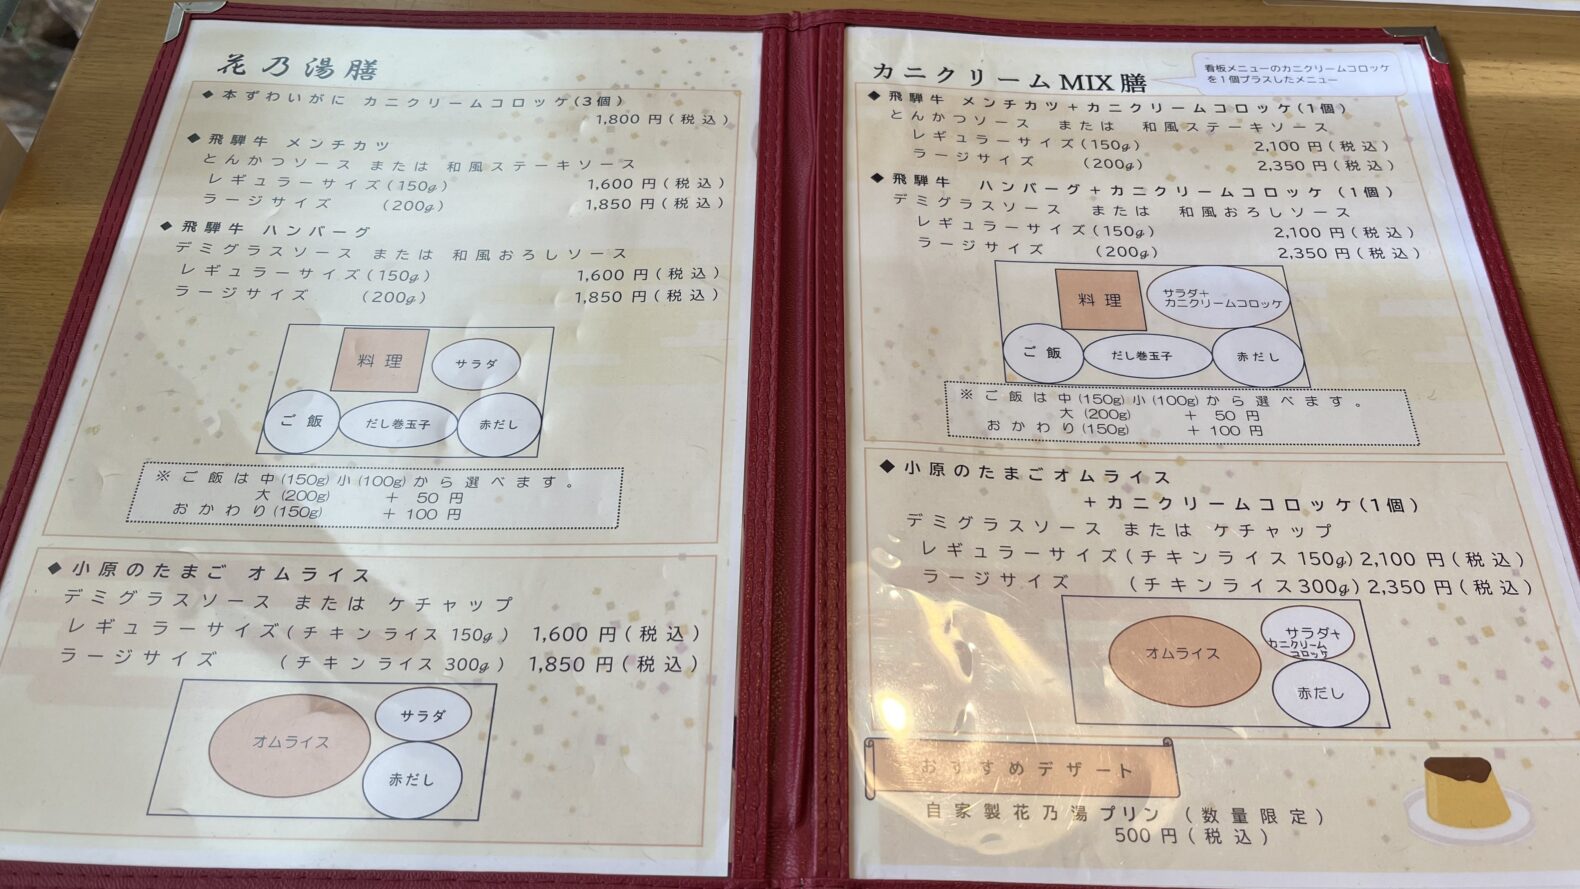 花乃湯膳
◆本ずわいがに カニクリームコロッケ(3個)
1,800円(税込)
◆飛騨牛 メンチカツ
とんかつソース または 和風ステーキソース
レギュラーサイズ(150g) 1,600円(税込)
ラージサイズ (200g) 1,850円(税込)
◆飛騨牛 ハンバーグ
デミグラスソース または 和風おろしソース
レギュラーサイズ(150g) 1,600円(税込)
ラージサイズ (200g) 1,850円(税込)
料理
サラダ
ご飯
だし巻玉子
赤だし
※ご飯は中(150g)小(100g)から選べます。
大(200g) + 50円
おかわり(150g) + 100円
◆小原のたまご オムライス
デミグラスソース または ケチャップ
レギュラーサイズ(チキンライス 150g) 1,600円(税込)
ラージサイズ (チキンライス 300g) 1,850円(税込)
オムライス
サラダ
赤だし
カニクリームMIX膳
看板メニューのカニクリームコロッケ
を1個プラスしたメニュー
◆飛騨牛 メンチカツ+カニクリームコロッケ(1個)
とんかつソース または 和風ステーキソース
レギュラーサイズ(150g) 2,100円(税込)
ラージサイズ (200g) 2,350円(税込)
◆飛騨牛 ハンバーグ+カニクリームコロッケ(1個)
デミグラスソース または 和風おろしソース
レギュラーサイズ(150g) 2,100円(税込)
ラージサイズ (200g) 2,350円(税込)
料理
サラダ+
カニクリームコロッケ
ご飯
だし巻玉子
赤だし
※ご飯は中(150g)小(100g)から選べます。
大(200g) + 50円
おかわり(150g) + 100円
◆小原のたまごオムライス
+カニクリームコロッケ(1個)
デミグラスソース または ケチャップ
レギュラーサイズ(チキンライス 150g) 2,100円(税込)
ラージサイズ (チキンライス 300g) 2,350円(税込)
オムライス
サラダ+
カニクリーム
コロッケ
赤だし
おすすめデザート
自家製花乃湯プリン(数量限定)
500円(税込)